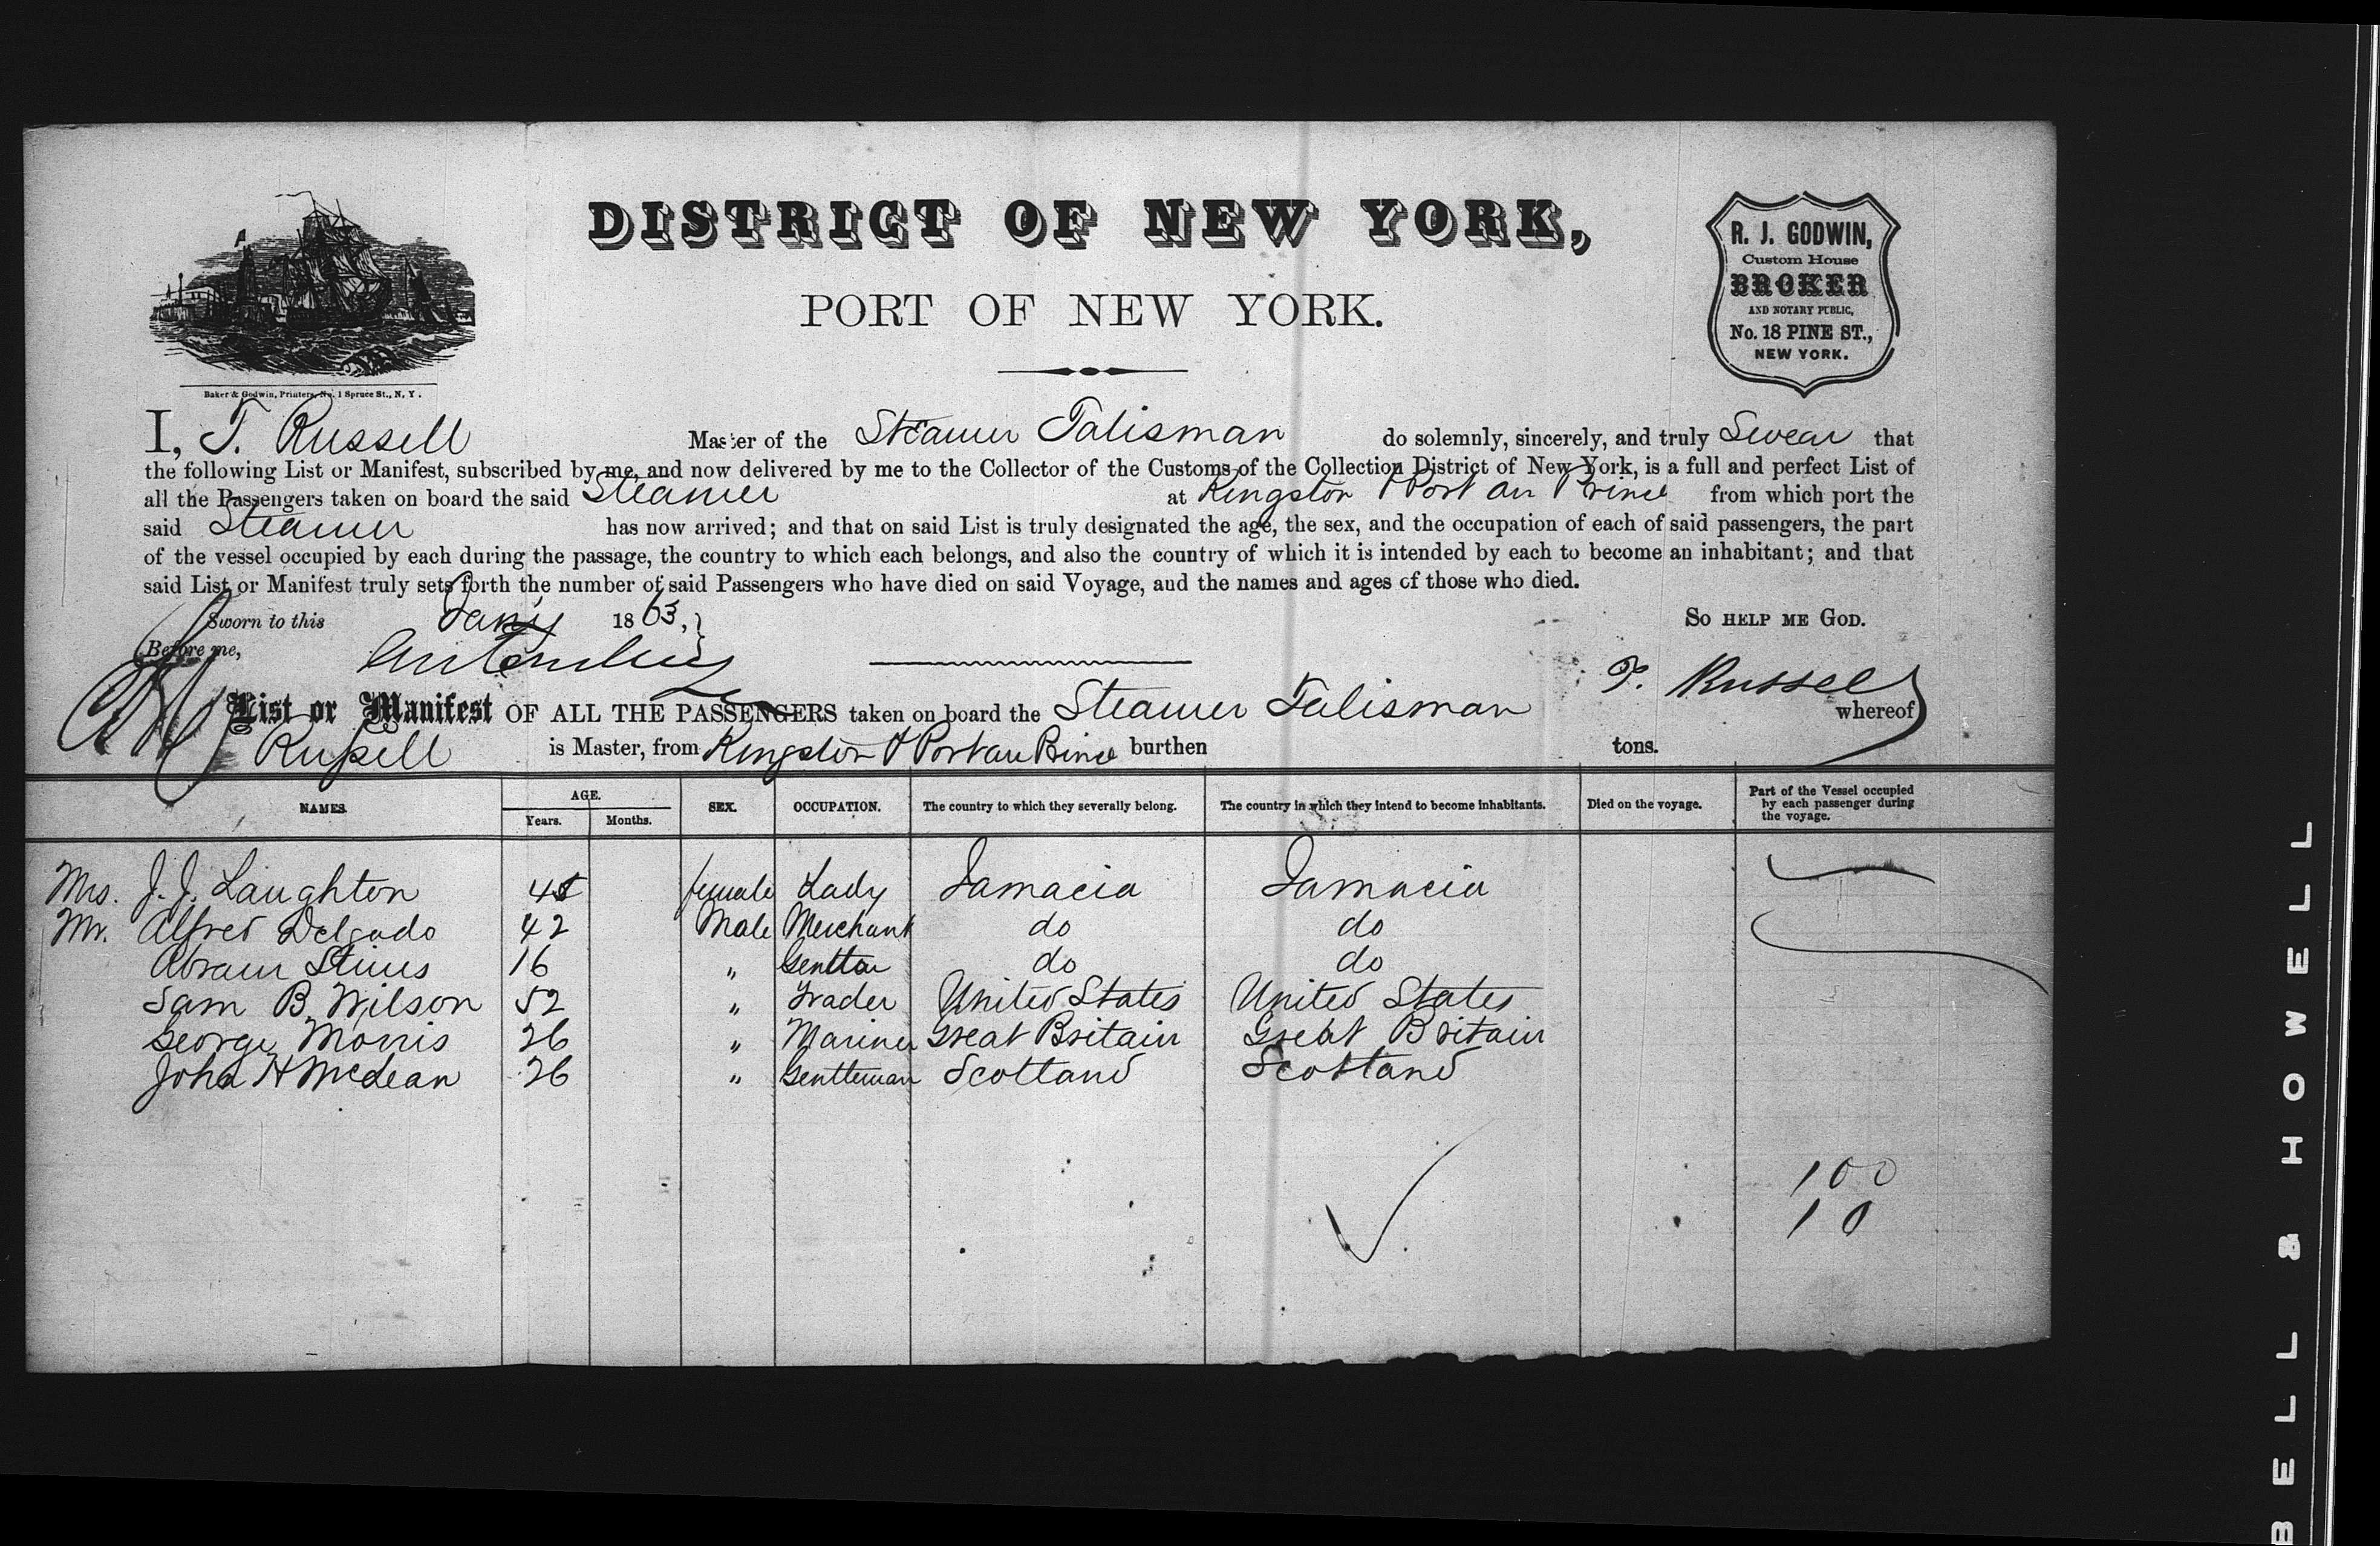 DISTRICT OF NEW YORK,
PORT OF NEW YORK.
R. J. GODWIN,
Custom House
BROKER
AND NOTARY PUBLIC,
No. 18 PINE ST.,
NEW YORK.
Baker & Godwin, Printers, No. 1 Spruce St., N. Y.
I, T. Russell Master of the Steamer Talisman do solemnly, sincerely, and truly Swear that
the following List or Manifest, subscribed by me, and now delivered by me to the Collector of the Customs of the Collection District of New York, is a full and perfect List of
all the Passengers taken on board the said Steamer at Kingston & Port au Prince from which port the
said Steamer has now arrived; and that on said List is truly designated the age, the sex, and the occupation of each of said passengers, the part
of the vessel occupied by each during the passage, the country to which each belongs, and also the country of which it is intended by each to become an inhabitant; and that
said List or Manifest truly sets forth the number of said Passengers who have died on said Voyage, and the names and ages of those who died.
Sworn to this Jany 1863, SO HELP ME GOD.
Before me,
T. Russell
List or Manifest OF ALL THE PASSENGERS taken on board the Steamer Talisman whereof
Russell is Master, from Kingston & Port au Prince burthen tons.
NAMES. AGE. Years. Months. SEX. OCCUPATION. The country to which they severally belong. The country in which they intend to become inhabitants. Died on the voyage. Part of the Vessel occupied by each passenger during the voyage.
Mrs. J. J. Laughton female Lady Jamacia Jamacia
Mr. Alfred Delgado 42 Male Merchant do do
Abram 16 " do do
Sam B. Wilson 52 " Trader United States United States
George Morris 26 " Mariner Great Britain Great Britain
John H McLean 26 " Gentleman Scotland Scotland
100
10
BELL & HOWELL